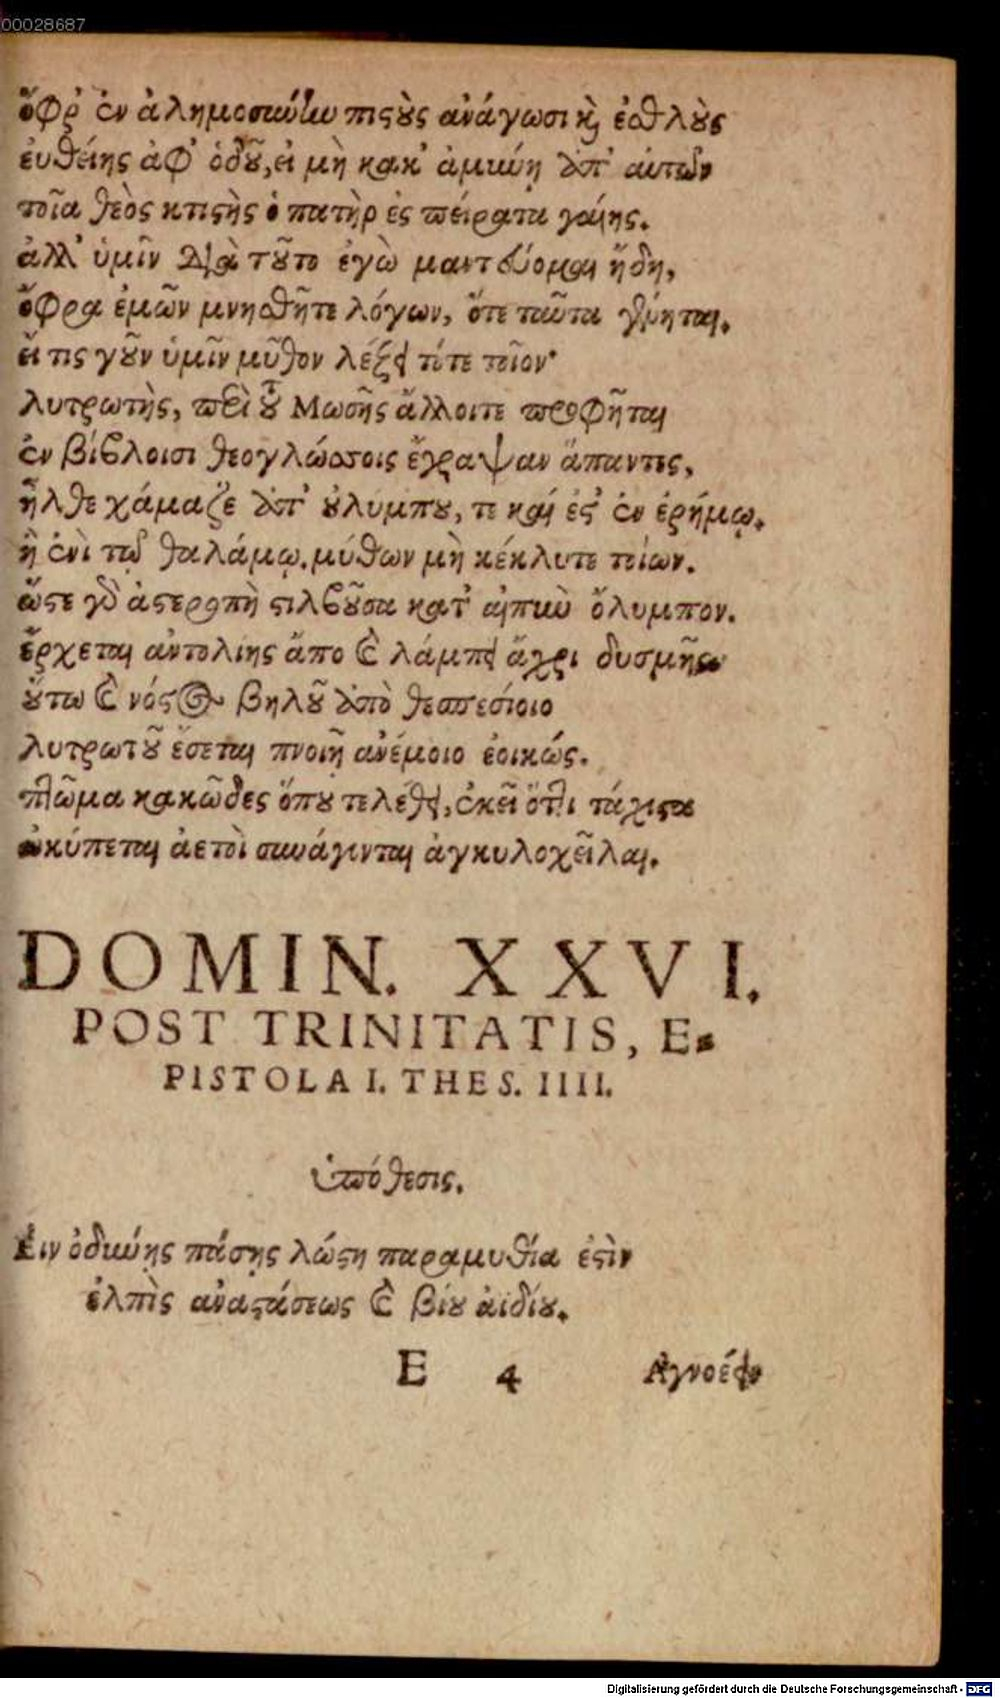 00028687
ὄφρ' ἐν ἀλημοσύνῃ πιστοὺς ἀνάγωσι καὶ ἐσθλοὺς
εὐθείης ἀφ' ὁδοῦ, εἰ μὴ κακ' ἀμύνῃ ἀπ' αὐτῶν
τοῖα θεὸς κτιστὴς ὁ πατὴρ ἐς πείρατα γαίης.
ἀλλ' ὑμῖν διὰ τοῦτο ἐγὼ μαντεύομαι ἤδη,
ὄφρα ἐμῶν μνησθῆτε λόγων, ὅτε ταῦτα γένηται.
εἴ τις γοῦν ὑμῖν μῦθον λέξει τότε τοῖον·
λυτρωτὴς, περὶ οὗ Μωσῆς ἄλλοιτε προφῆται
ἐν βίβλοισι θεογλώσσοις ἔγραψαν ἅπαντες,
ἦλθε χάμαζε ἀπ' οὐλύμπου, τε καί ἐστ' ἐν ἐρήμῳ.
ἢ ἐνὶ τῷ θαλάμῳ. μύθων μὴ κέκλυτε τοίων.
ὥστε γὰρ ἀστεροπὴ στίλβουσα κατ' αἰπὺν ὄλυμπον.
ἔρχεται ἀντολίης ἄπο καὶ λάμπει ἄχρι δυσμῆς
οὕτω καὶ νόστος βηλοῦ ἀπὸ θεσπεσίοιο
λυτρωτοῦ ἔσεται πνοιῇ ἀνέμοιο ἐοικώς.
πτῶμα κακῶδες ὅπου τελέθει, ἐκεῖ ὅτι τάχιστα
ὠκύπεται ἀετοὶ συνάγονται ἀγκυλοχεῖλαι.
DOMIN. XXVI.
POST TRINITATIS, E-
PISTOLA I. THES. IIII.
ὑπόθεσις.
Ειν ὀδύνῃς πάσῃς λώστη παραμυθία ἐστὶν
ἐλπὶς ἀναστάσεως καὶ βίου ἀϊδίου.
E 4 Αγνοέειν
Digitalisierung gefördert durch die Deutsche Forschungsgemeinschaft - DFG